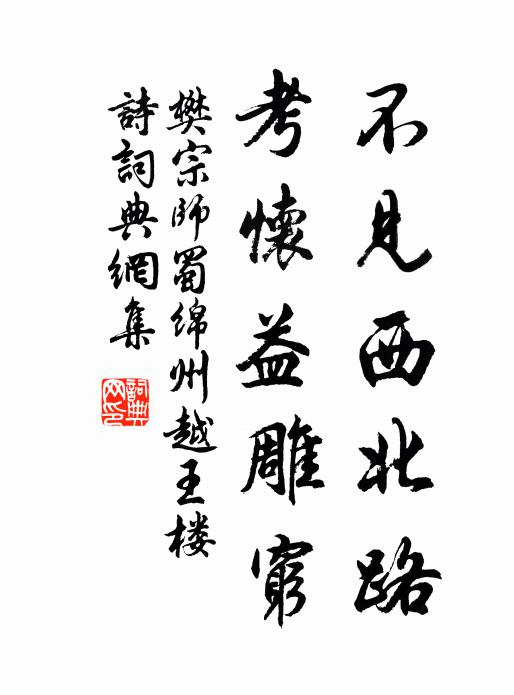 不見西北路
考懷益雕窮
樊宗師蜀绵州越王楼
詩詞典網集
詞典网印